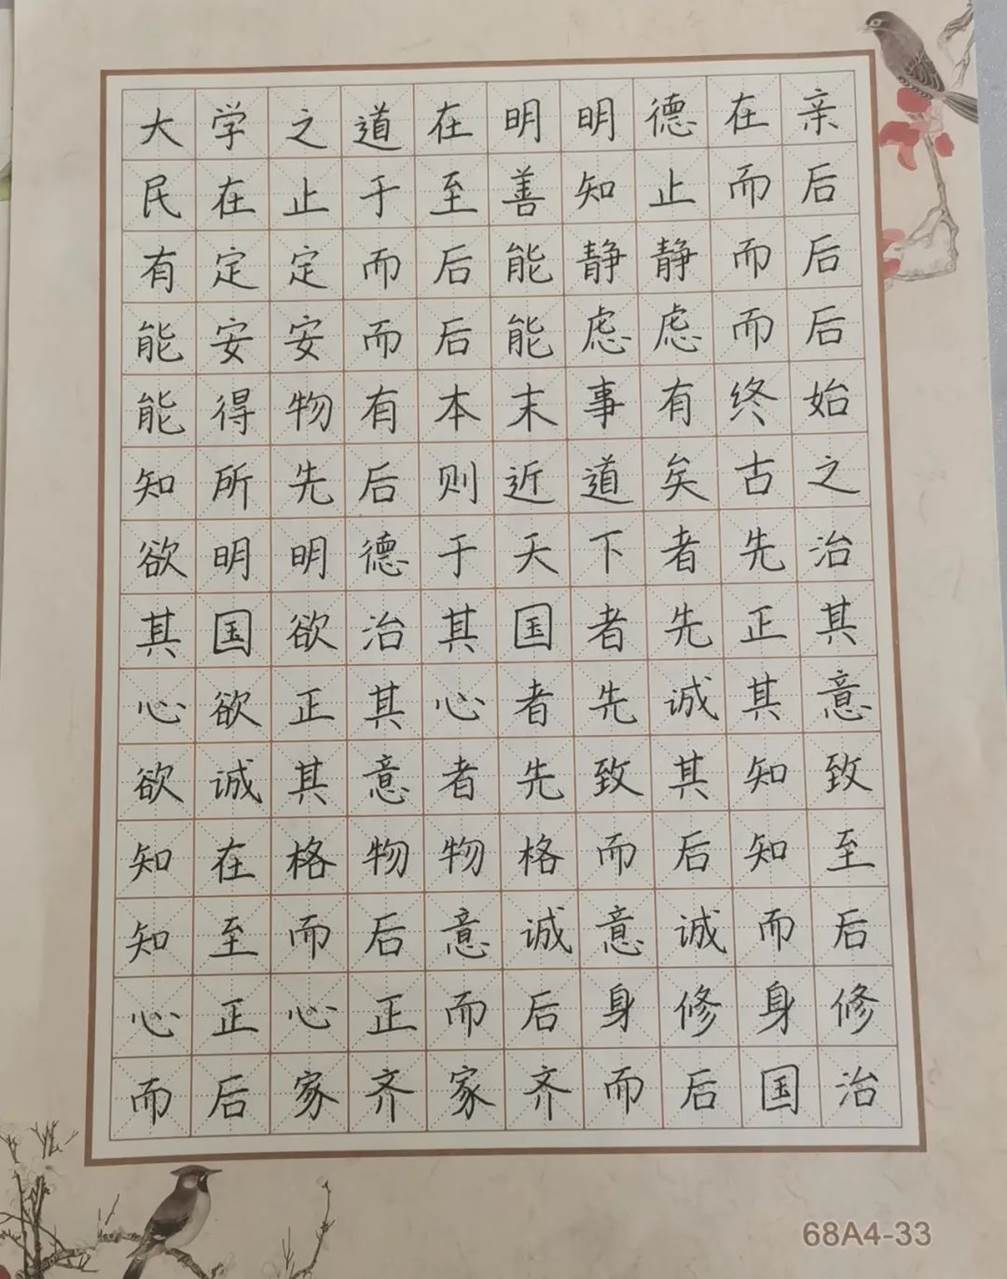 大学之道在明明德在亲
民在止于至善知止而后
有定定而后能静静而后
能安安而后能虑虑而后
能得物有本末事有终始
知所先后则近道矣古之
欲明明德于天下者先治
其国欲治其国者先正其
心欲正其心者先诚其意
欲诚其意者先致其知致
知在格物物格而后知至
知至而后意诚意诚而后
心正心正而后身修身修
而后家齐家齐而后国治
68A4-33